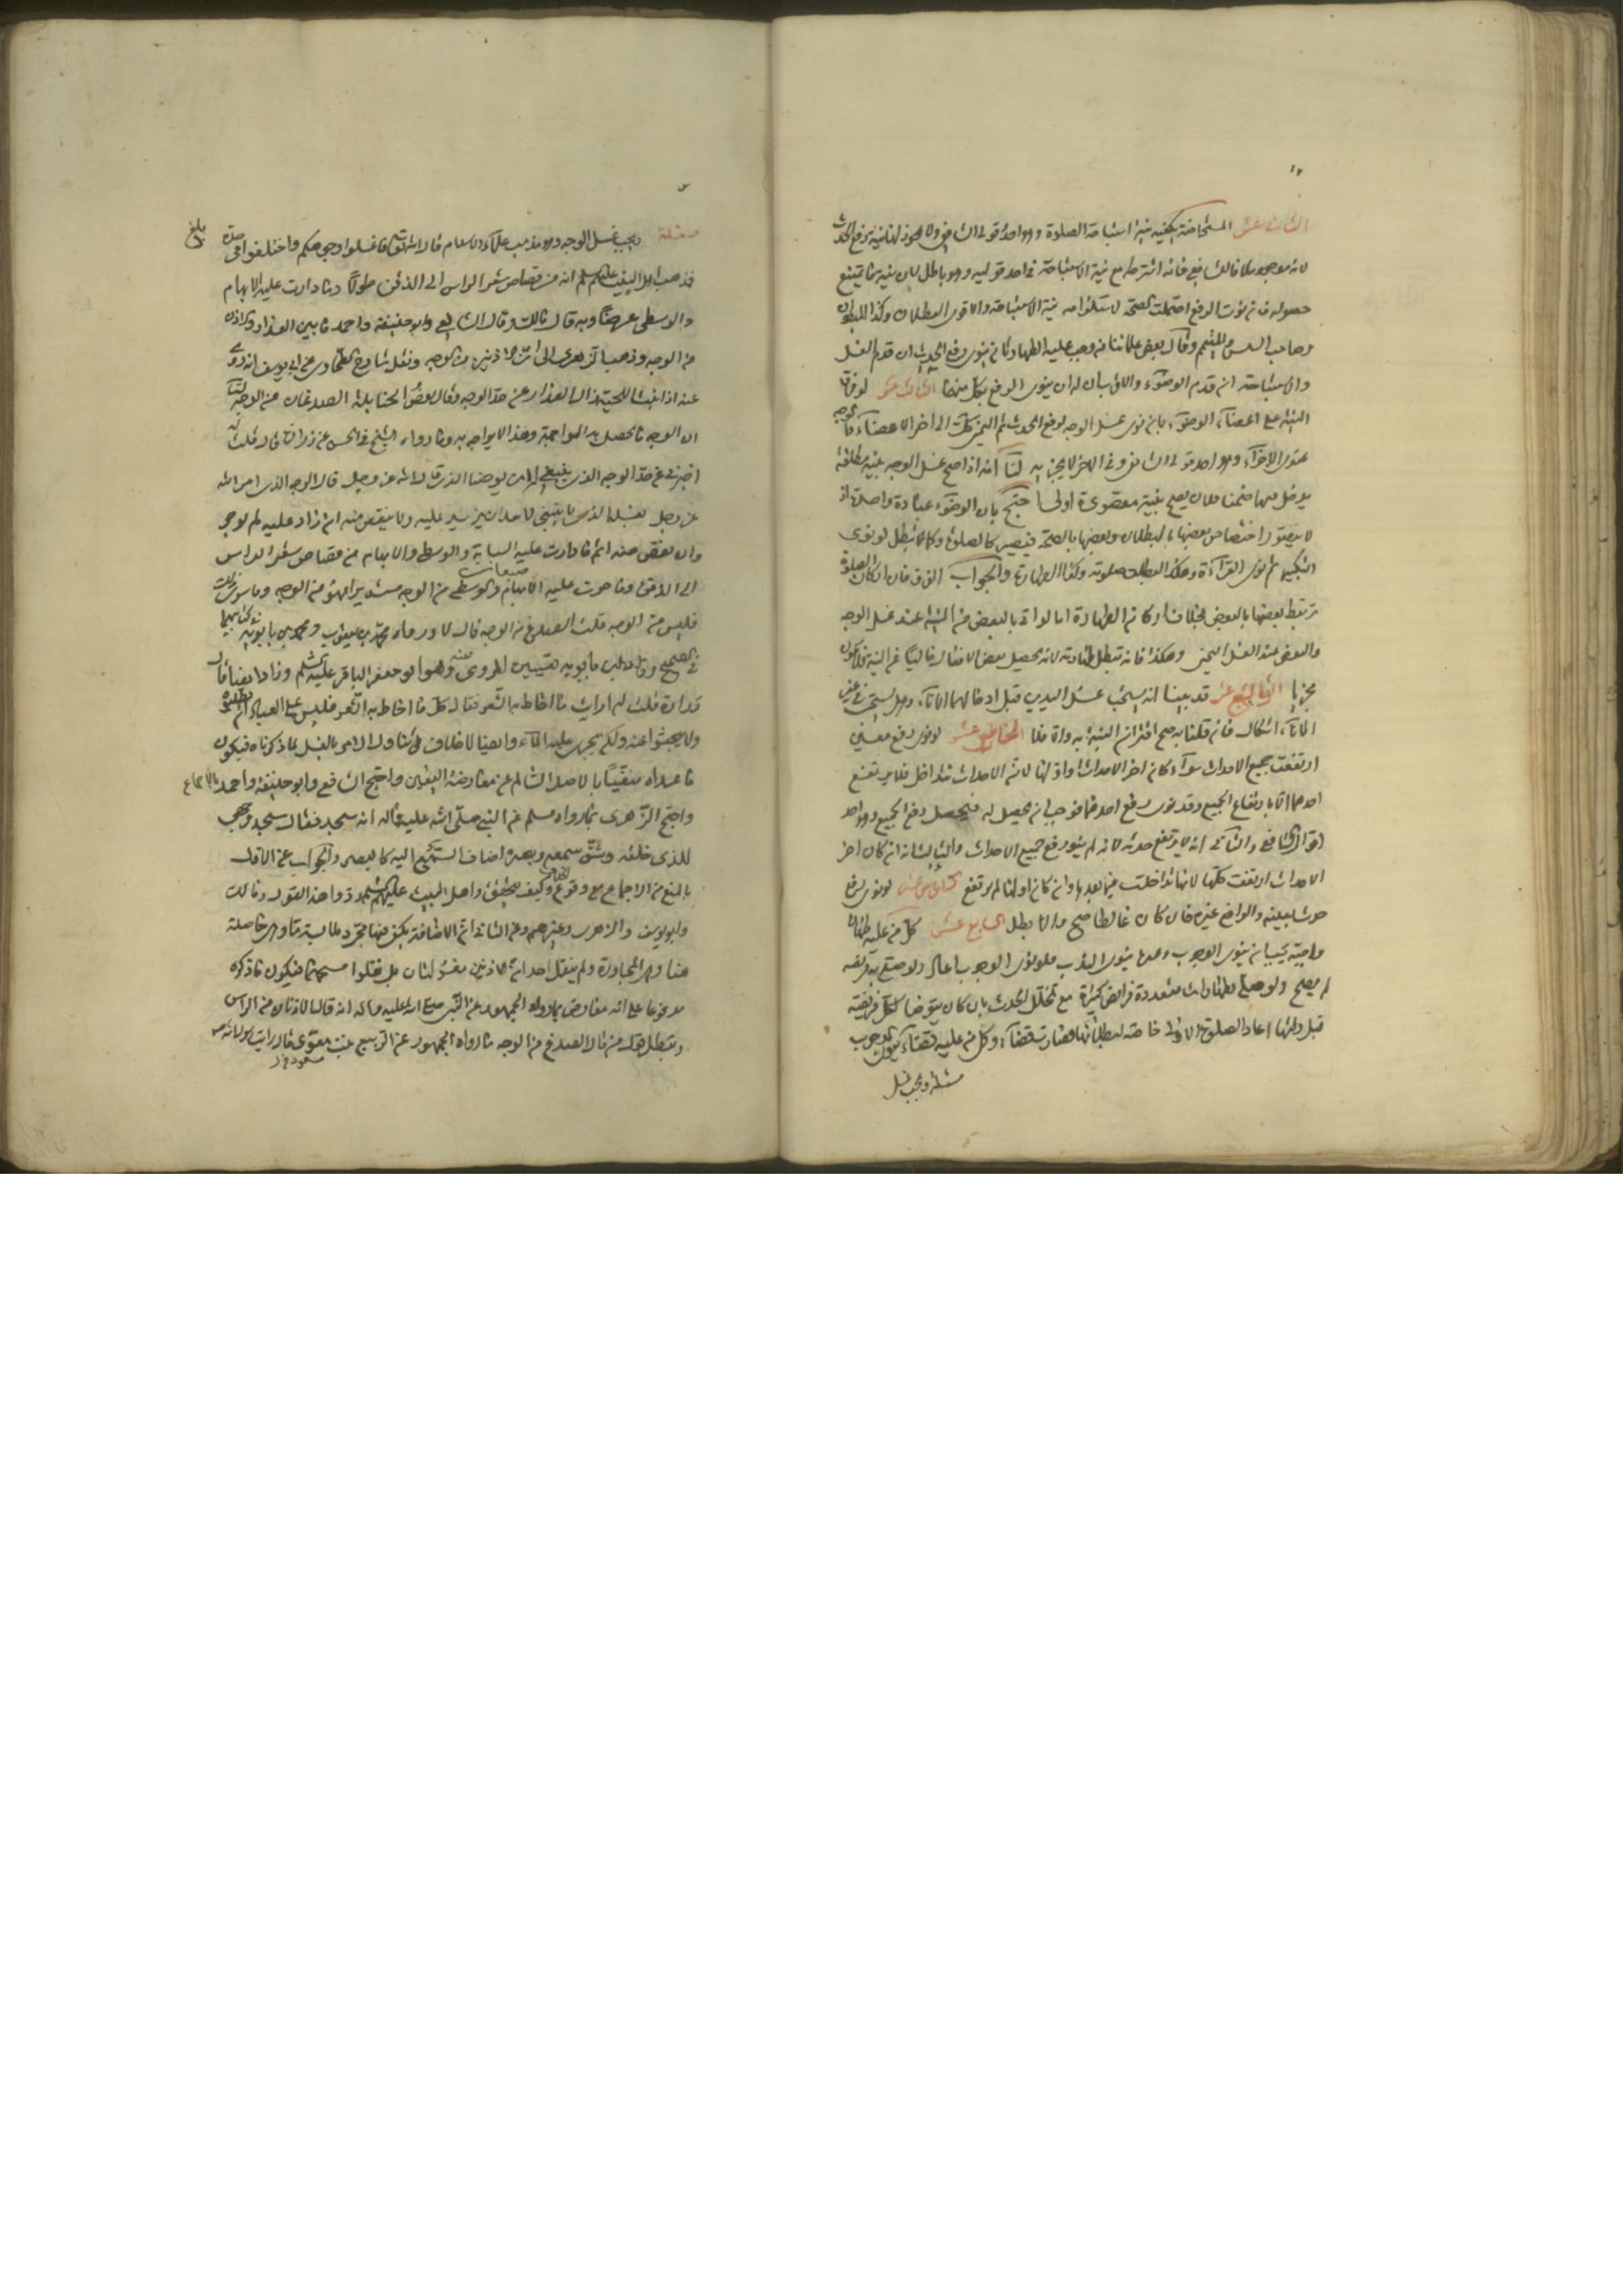 ١٢
الثانى عشر المستحاضة يكفيه نية استباحة الصلوة وهو احد قولى الشافعى ولا يجوز لها نية رفع الحدث
لانه موجود كما قال الشافعى فانه اشترط مع نية الاستباحة فى احد قوليه وهو باطل لان نية ما يمتنع
حصوله فان نوت الرفع احتملت الصحة لاستلزامه نية الاستباحة والاقوى البطلان وكذا المبطون
وصاحب السلس والمتيمم وقال بعض علمائنا من وجب عليه الطهارتان ينوى رفع الحدث ان قدم الغسل
والاستباحة ان قدم الوضوء والاقرب ان له ان ينوى الرفع بكل منهما الثالث عشر لو فرق
النية على اعضاء الوضوء بان نوى غسل الوجه لرفع الحدث ثم اليمنى كذلك الى اخر الاعضاء فالوجه
عندى الاجزاء وهو احد قولى الشافعى وفى الاخر لا يجزيه لنا انه اذا صح غسل الوجه بنية مطلقة
يدخل فيها ضمنا فلان يصح بنية مقصودة اولى احتج بان الوضوء عبادة واحدة اذ
لا يتصور اختصاص بعضها بالبطلان وبعضها بالصحة فيصير كالصلوة وكما تبطل لو نوى
التكبير ثم نوى القراءة وهكذا بطلت صلوته وكذا الطهارة والجواب الفرق فان اركان الصلوة
يرتبط بعضها بالبعض بخلاف اركان الطهارة اما لو اتى بالبعض من النية عند غسل الوجه
والبعض عند الغسل اليمنى وهكذا فانه تبطل طهارته لانه يحصل بعض الافعال خاليا عن النية فلا يكون
مجزيا الرابع عشر قد بينا انه يستحب غسل اليدين قبل ادخالهما الاناء وهل يستحب فى غير
الاناء اشكال فان قلنا به صح اقتران النية به والا فلا الخامس عشر لو نوى رفع معين
ارتفعت جميع الاحداث سواء كان اخر الاحداث او اولها لان الاحداث تتداخل فلا يرتفع
احدها الا بارتفاع الجميع وقد نوى رفع احدها فوجب ان يحصل له فيحصل رفع الجميع وهو احد
اقوال الشافعى والثانى انه لا يرتفع حدثه لانه لم ينو رفع جميع الاحداث والثالث انه ان كان اخر
الاحداث ارتفعت كلها لانها تداخلت فيما بعدها وان كان اولها لم يرتفع السادس عشر لو نوى رفع
حدث بعينه والواقع غيره فان كان غالطا صح والا بطل السابع عشر كل من عليه طهارة
واجبة يجب ان ينوى الوجوب وغيره ينوى الندب فلو نوى الوجوب اعاد ولو صلى به فريضة
لم يصح ولو صلى بطهارات متعددة فرائض كثيرة مع تخلل الحدث بان كان يتوضا لكل فريضة
قبل وقتها اعاد الصلوة الاولى خاصة لبطلانها فصارت قضاء وكل من عليه قضاء ينوى الوجوب
مسئلة ويجب غسل
مسئلة ويجب غسل الوجه وهو مذهب علماء الاسلام قال الله تعالى فاغسلوا وجوهكم واختلفوا فى حده
بلغ
فذهب اهل البيت عليهم السلام انه من قصاص شعر الراس الى الذقن طولا وما دارت عليه الابهام
والوسطى عرضا وبه قال مالك وقال الشافعى وابو حنيفة واحمد ما بين العذار والاذن
من الوجه وذهب الزهرى الى ان الاذنين من الوجه ونقل شارح الطحاوى عن ابى يوسف انه روى
عنه اذا نبت اللحية زال العذار عن حد الوجه وقال بعض الحنابلة الصدغان من الوجه لنا
ان الوجه ما يحصل به المواجهة وهذا لا يواجه به وما رواه الشيخ فى الحسن عن زرارة قال قلت له
اخبرنى عن حد الوجه الذى ينبغى له ان يوضا الذى قال الله عز وجل قال الوجه الذى امر الله
عز وجل بغسله الذى لا ينبغى لاحد ان يزيد عليه ولا ينقص منه ان زاد عليه لم يوجر
وان نقص منه اثم ما دارت عليه السبابة والوسطى والابهام من قصاص شعر الراس
الى الذقن وما حوت عليه الابهام والوسطى من الوجه مستديرا فهو من الوجه وما سوى ذلك
فليس من الوجه قلت الصدغ من الوجه قال لا ورواه محمد بن يعقوب ومحمد بن بابويه فى كتابيهما
فى الصحيح وقال ابن بابويه بتعيين المروى عنه وهو ابو جعفر الباقر عليه السلم وزادا بعد قال
زرارة قلت له ارايت ما احاط به الشعر فقال كل ما احاط به الشعر فليس على العباد ان يطلبوه
ولا يبحثوا عنه ولكن يجرى عليه الماء وايضا لا خلاف فى تناول الامر بالغسل لما ذكرناه فيكون
ما عداه منفيا بالاصل السالم عن معارضة اليقين واحتج الشافعى وابو حنيفة واحمد بالاجماع
واحتج الزهرى بما رواه مسلم عن النبى صلى الله عليه واله انه سجد فقال سجد وجهى
للذى خلقه وشق سمعه وبصره اضاف السمع اليه كالبصر والجواب عن الاول
بالمنع من الاجماع مع وقوع الخلاف وكيف يتحقق واهل البيت عليهم السلم ردوا هذا القول ومالك
وابو يوسف والزهرى وغيرهم وعن الثانى ان الاضافة يكفى فيها مجرد ملابسة ما وهى حاصلة
هنا وهى المجاورة ولم ينقل احد ان الاذنين مغسولتان بل نقلوا مسحهما فيكون ما ذكره
مدفوعا على انه معارض بما رواه الجمهور عن النبى صلى الله عليه واله انه قال الاذنان من الراس
ويبطل قول من قال الصدغ من الوجه ما رواه الجمهور عن الربيع بنت معوذ قال رايت رسول الله ص